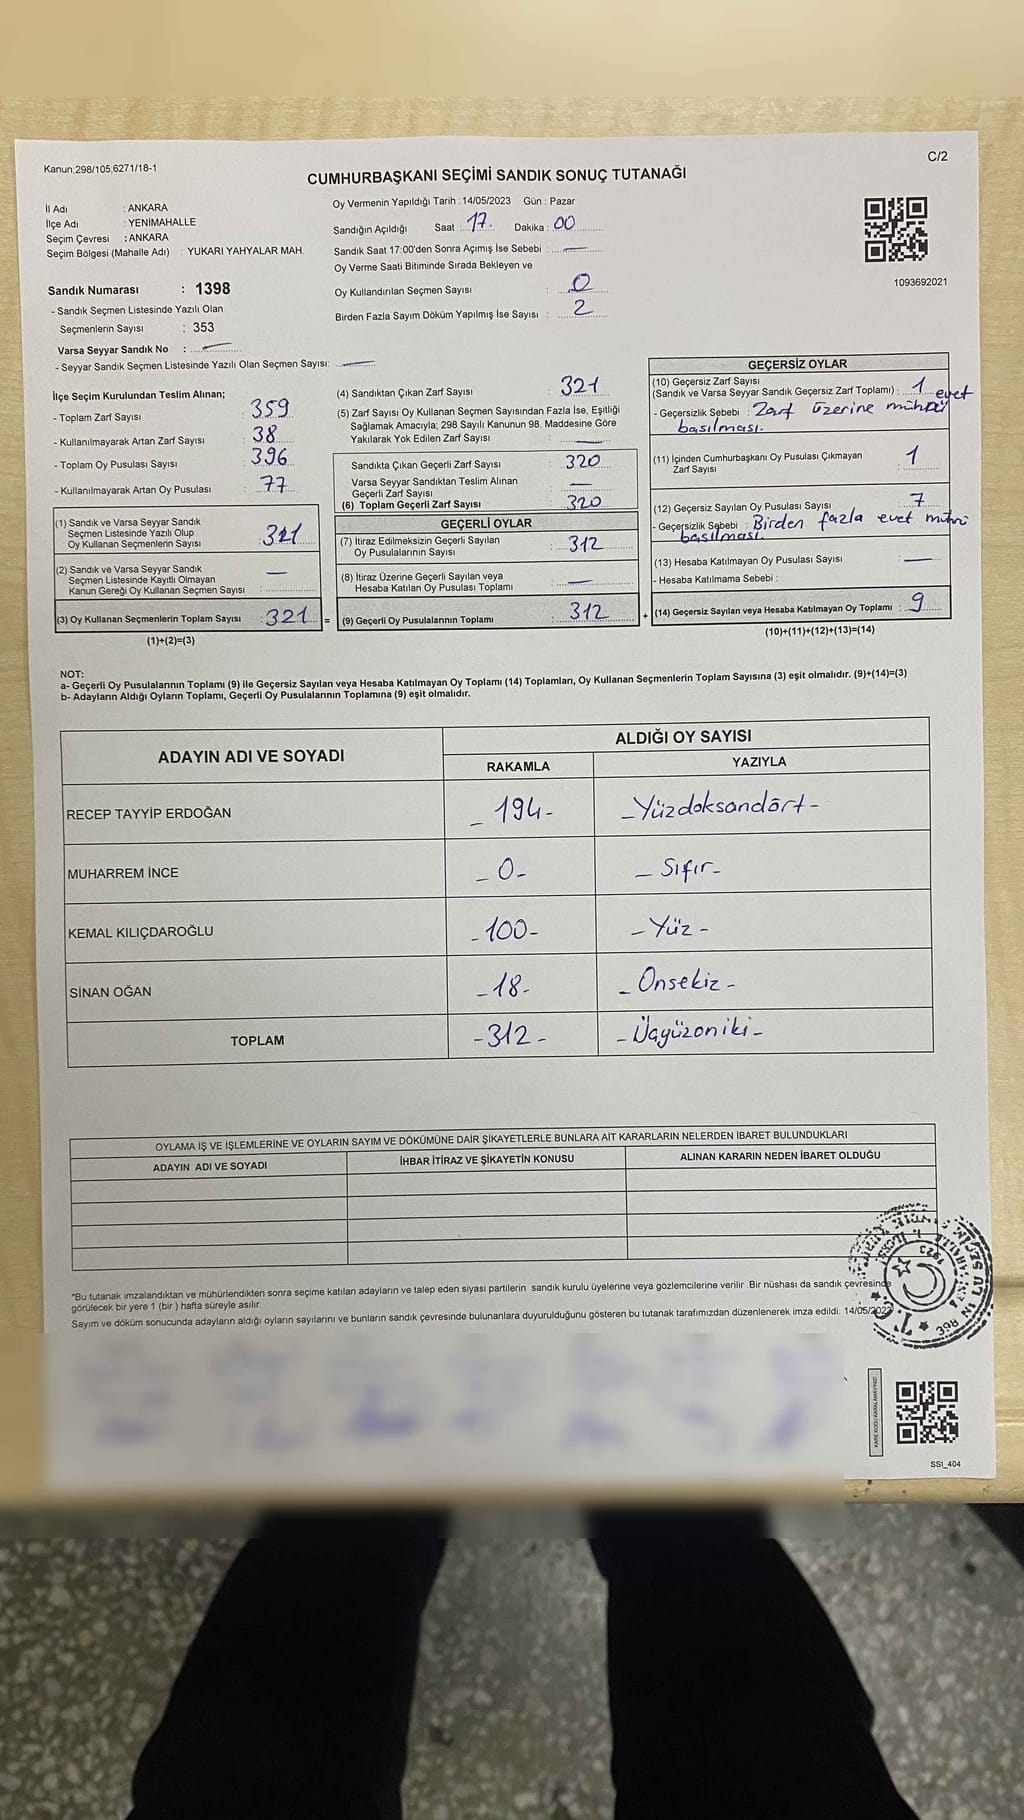 Kanun,298/105,6271/18-1
C/2
CUMHURBAŞKANI SEÇİMİ SANDIK SONUÇ TUTANAĞI
İl Adı : ANKARA
İlçe Adı : YENİMAHALLE
Seçim Çevresi : ANKARA
Seçim Bölgesi (Mahalle Adı) : YUKARI YAHYALAR MAH.
Sandık Numarası : 1398
- Sandık Seçmen Listesinde Yazılı Olan
Seçmenlerin Sayısı : 353
Varsa Seyyar Sandık No : —
- Seyyar Sandık Seçmen Listesinde Yazılı Olan Seçmen Sayısı: —
Oy Vermenin Yapıldığı Tarih : 14/05/2023 Gün : Pazar
Sandığın Açıldığı Saat : 17. Dakika : 00
Sandık Saat 17:00'den Sonra Açımış İse Sebebi : —
Oy Verme Saati Bitiminde Sırada Bekleyen ve
Oy Kullandırılan Seçmen Sayısı : 0
Birden Fazla Sayım Döküm Yapılmış İse Sayısı : 2
1093692021
İlçe Seçim Kurulundan Teslim Alınan;
- Toplam Zarf Sayısı : 359
- Kullanılmayarak Artan Zarf Sayısı : 38
- Toplam Oy Pusulası Sayısı : 396
- Kullanılmayarak Artan Oy Pusulası : 77
(1) Sandık ve Varsa Seyyar Sandık
Seçmen Listesinde Yazılı Olup
Oy Kullanan Seçmenlerin Sayısı : 321
(2) Sandık ve Varsa Seyyar Sandık
Seçmen Listesinde Kayıtlı Olmayan
Kanun Gereği Oy Kullanan Seçmen Sayısı : —
(3) Oy Kullanan Seçmenlerin Toplam Sayısı : 321 =
(1)+(2)=(3)
(4) Sandıktan Çıkan Zarf Sayısı : 321
(5) Zarf Sayısı Oy Kullanan Seçmen Sayısından Fazla İse, Eşitliği
Sağlamak Amacıyla; 298 Sayılı Kanunun 98. Maddesine Göre
Yakılarak Yok Edilen Zarf Sayısı : —
Sandıkta Çıkan Geçerli Zarf Sayısı : 320
Varsa Seyyar Sandıktan Teslim Alınan
Geçerli Zarf Sayısı : —
(6) Toplam Geçerli Zarf Sayısı : 320
GEÇERLİ OYLAR
(7) İtiraz Edilmeksizin Geçerli Sayılan
Oy Pusulalarının Sayısı : 312
(8) İtiraz Üzerine Geçerli Sayılan veya
Hesaba Katılan Oy Pusulası Toplamı : —
(9) Geçerli Oy Pusulalarının Toplamı : 312 +
GEÇERSİZ OYLAR
(10) Geçersiz Zarf Sayısı
(Sandık ve Varsa Seyyar Sandık Geçersiz Zarf Toplamı) : 1
- Geçersizlik Sebebi : Zarf üzerine evet mühürü
basılması.
(11) İçinden Cumhurbaşkanı Oy Pusulası Çıkmayan
Zarf Sayısı : 1
(12) Geçersiz Sayılan Oy Pusulası Sayısı : 7
- Geçersizlik Sebebi : Birden fazla evet mührü
basılması.
(13) Hesaba Katılmayan Oy Pusulası Sayısı : —
- Hesaba Katılmama Sebebi :
(14) Geçersiz Sayılan veya Hesaba Katılmayan Oy Toplamı : 9
(10)+(11)+(12)+(13)=(14)
NOT:
a- Geçerli Oy Pusulalarının Toplamı (9) ile Geçersiz Sayılan veya Hesaba Katılmayan Oy Toplamı (14) Toplamları, Oy Kullanan Seçmenlerin Toplam Sayısına (3) eşit olmalıdır. (9)+(14)=(3)
b- Adayların Aldığı Oyların Toplamı, Geçerli Oy Pusulalarının Toplamına (9) eşit olmalıdır.
ADAYIN ADI VE SOYADI ALDIĞI OY SAYISI
RAKAMLA YAZIYLA
RECEP TAYYİP ERDOĞAN - 194- -Yüzdoksandört-
MUHARREM İNCE - 0- - Sıfır-
KEMAL KILIÇDAROĞLU -100- -Yüz -
SİNAN OĞAN -18- - Onsekiz -
TOPLAM -312- -Üçyüzoniki-
OYLAMA İŞ VE İŞLEMLERİNE VE OYLARIN SAYIM VE DÖKÜMÜNE DAİR ŞİKAYETLERLE BUNLARA AİT KARARLARIN NELERDEN İBARET BULUNDUKLARI
ADAYIN ADI VE SOYADI İHBAR İTİRAZ VE ŞİKAYETİN KONUSU ALINAN KARARIN NEDEN İBARET OLDUĞU
*Bu tutanak imzalandıktan ve mühürlendikten sonra seçime katılan adayların ve talep eden siyasi partilerin sandık kurulu üyelerine veya gözlemcilerine verilir. Bir nüshası da sandık çevresinde
görülecek bir yere 1 (bir ) hafta süreyle asılır.
Sayım ve döküm sonucunda adayların aldığı oyların sayılarını ve bunların sandık çevresinde bulunanlara duyurulduğunu gösteren bu tutanak tarafımızdan düzenlenerek imza edildi. 14/05/2023
T.C.
KARE KODU KARALAMAYINIZ!
SSI_404